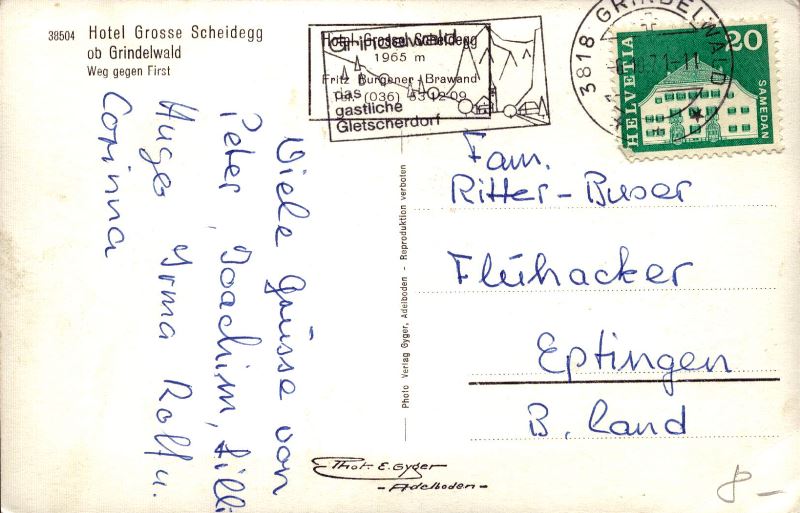 38504 Hotel Grosse Scheidegg
ob Grindelwald
Weg gegen First
Hotel Grosse Scheidegg
1965 m
Fritz Burgener-Brawand
Tel. (036) 53 12 09
Grindelwald
das
gastliche
Gletscherdorf
3818 GRINDELWALD
71-11
HELVETIA
20
SAMEDAN
Viele Grüsse von
Peter, Joachim, Lilli
Hugo Irma Rolf u.
Corinna
Photo Verlag Gyger, Adelboden - Reproduktion verboten
Fam.
Ritter-Buser
Flühacker
Eptingen
B. Land
Phot. E. Gyger
-Adelboden-
8-